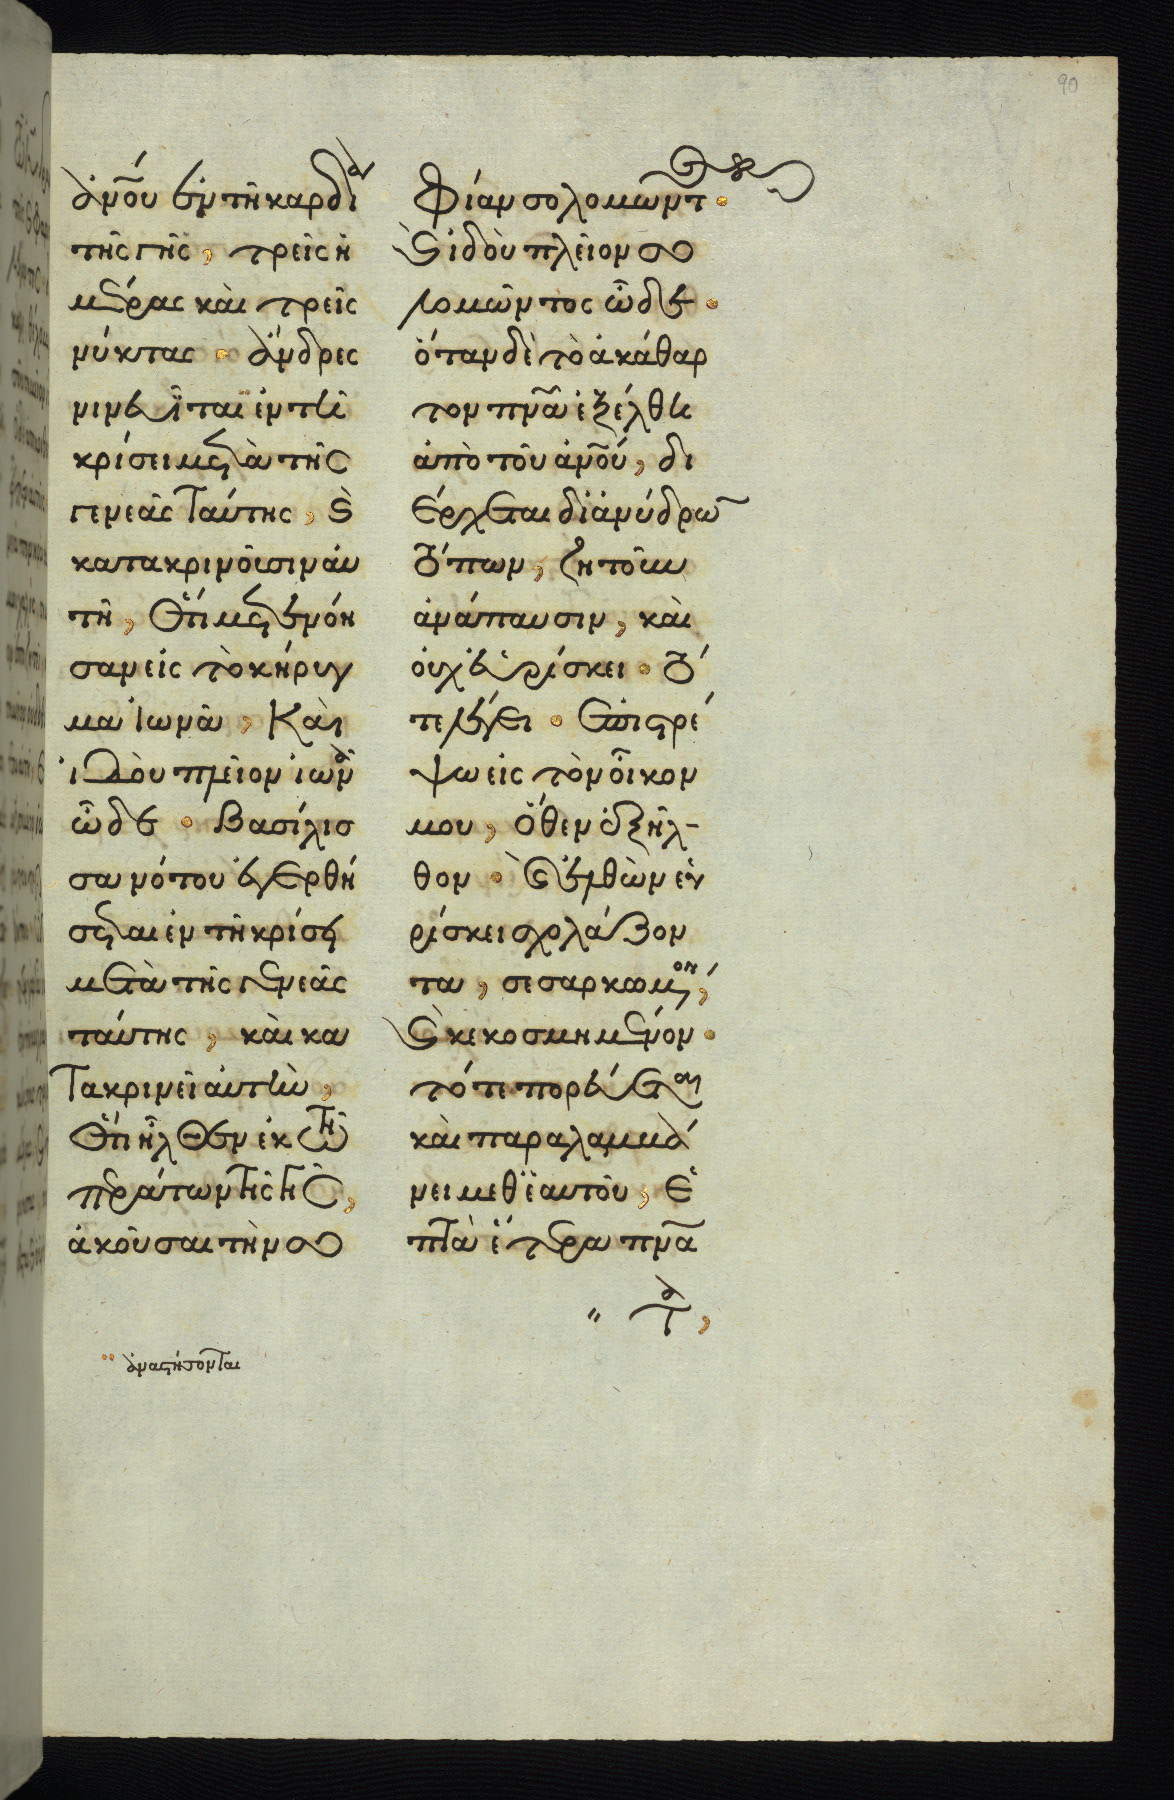 90
ἀν̅ου ἐν τῇ καρδίᾳ
τῆς γῆς, τρεῖς ἡ
μέρας καὶ τρεῖς
νύκτας · ἄνδρες
νινευῗται ἐν τῇ
κρίσει μετὰ τῆς
γενεᾶς ταύτης, ϗ
κατακρινοῦσιν αὐ
τὴν, ὅτι μετενόη
σαν εἰς τὸ κήρυγ
μα ἰωνᾶ, καὶ
ἰδοὺ πλεῖον ἰωνᾶ
ὧδε · βασίλισ
σα νότου ἐγερθή
σεται ἐν τῇ κρίσει
μετὰ τῆς γενεᾶς
ταύτης, καὶ κα
τακρινεῖ αὐτὴν,
ὅτι ἦλθεν ἐκ τῶν
περάτων τῆς γῆς,
ἀκοῦσαι τὴν σο
¨ ἀναστήσονται
φίαν σολομῶντος ·
ϗ ἰδοὺ πλεῖον σο
λομῶντος ὧδε ·
ὅταν δὲ τὸ ἀκάθαρ
τον πν̅α ἐξέλθῃ
ἀπὸ τοῦ ἀν̅ου, δι
έρχεται δι' ἀνύδρων
τόπων, ζητοῦν
ἀνάπαυσιν, καὶ
οὐχ εὑρίσκει · τό
τε λέγει · ἐπιστρέ
ψω εἰς τὸν οἶκον
μου, ὅθεν ἐξῆλ-
θον · ϗ ἐλθὼν εὑ
ρίσκει σχολάζον
τα, σεσαρωμένον,
ϗ κεκοσμημένον ·
τότε πορεύεται
καὶ παραλαμβά
νει μεθ' ἑαυτοῦ, ἑ
πτὰ ἕτερα πν̅α
" τα,